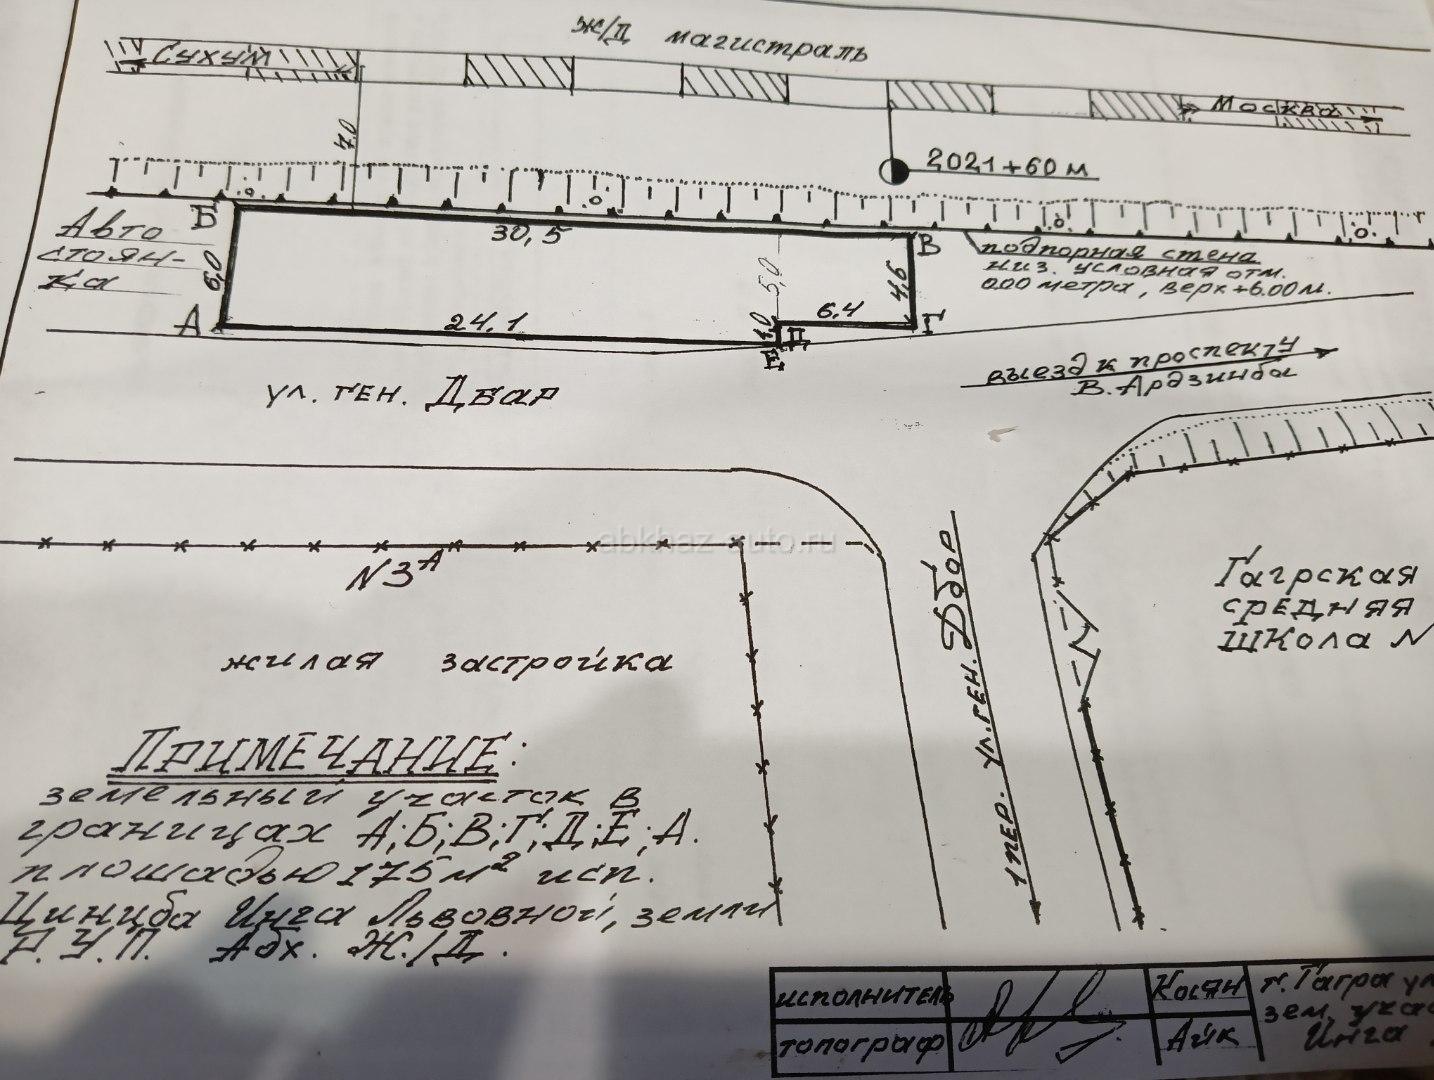 ж/д магистраль
Сухум
Москва
7.0
2021+60 м
Б
30,5
В
Авто
стоян-
ка
6,0
5,0
4,6
подпорная стена
низ. условная отм.
0.00 метра, верх +6.00 м.
А
24,1
1,0
Д
6,4
Г
Е
выезд к проспекту
В. Ардзинба
ул. ген. Дбар
abkhaz-auto.ru
N3А
1 пер. ул. ген. Дбар
Гагрская
средняя
школа N
жилая застройка
Примечание:
земельный участок в
границах А; Б; В; Г; Д; Е; А.
площадью 175 м² исп.
Инга Львовной, земли
Р.У.П. Абх. Ж/Д.
исполнитель
Косян
топограф
Айк
г. Гагра ул
зем. учас
Инга